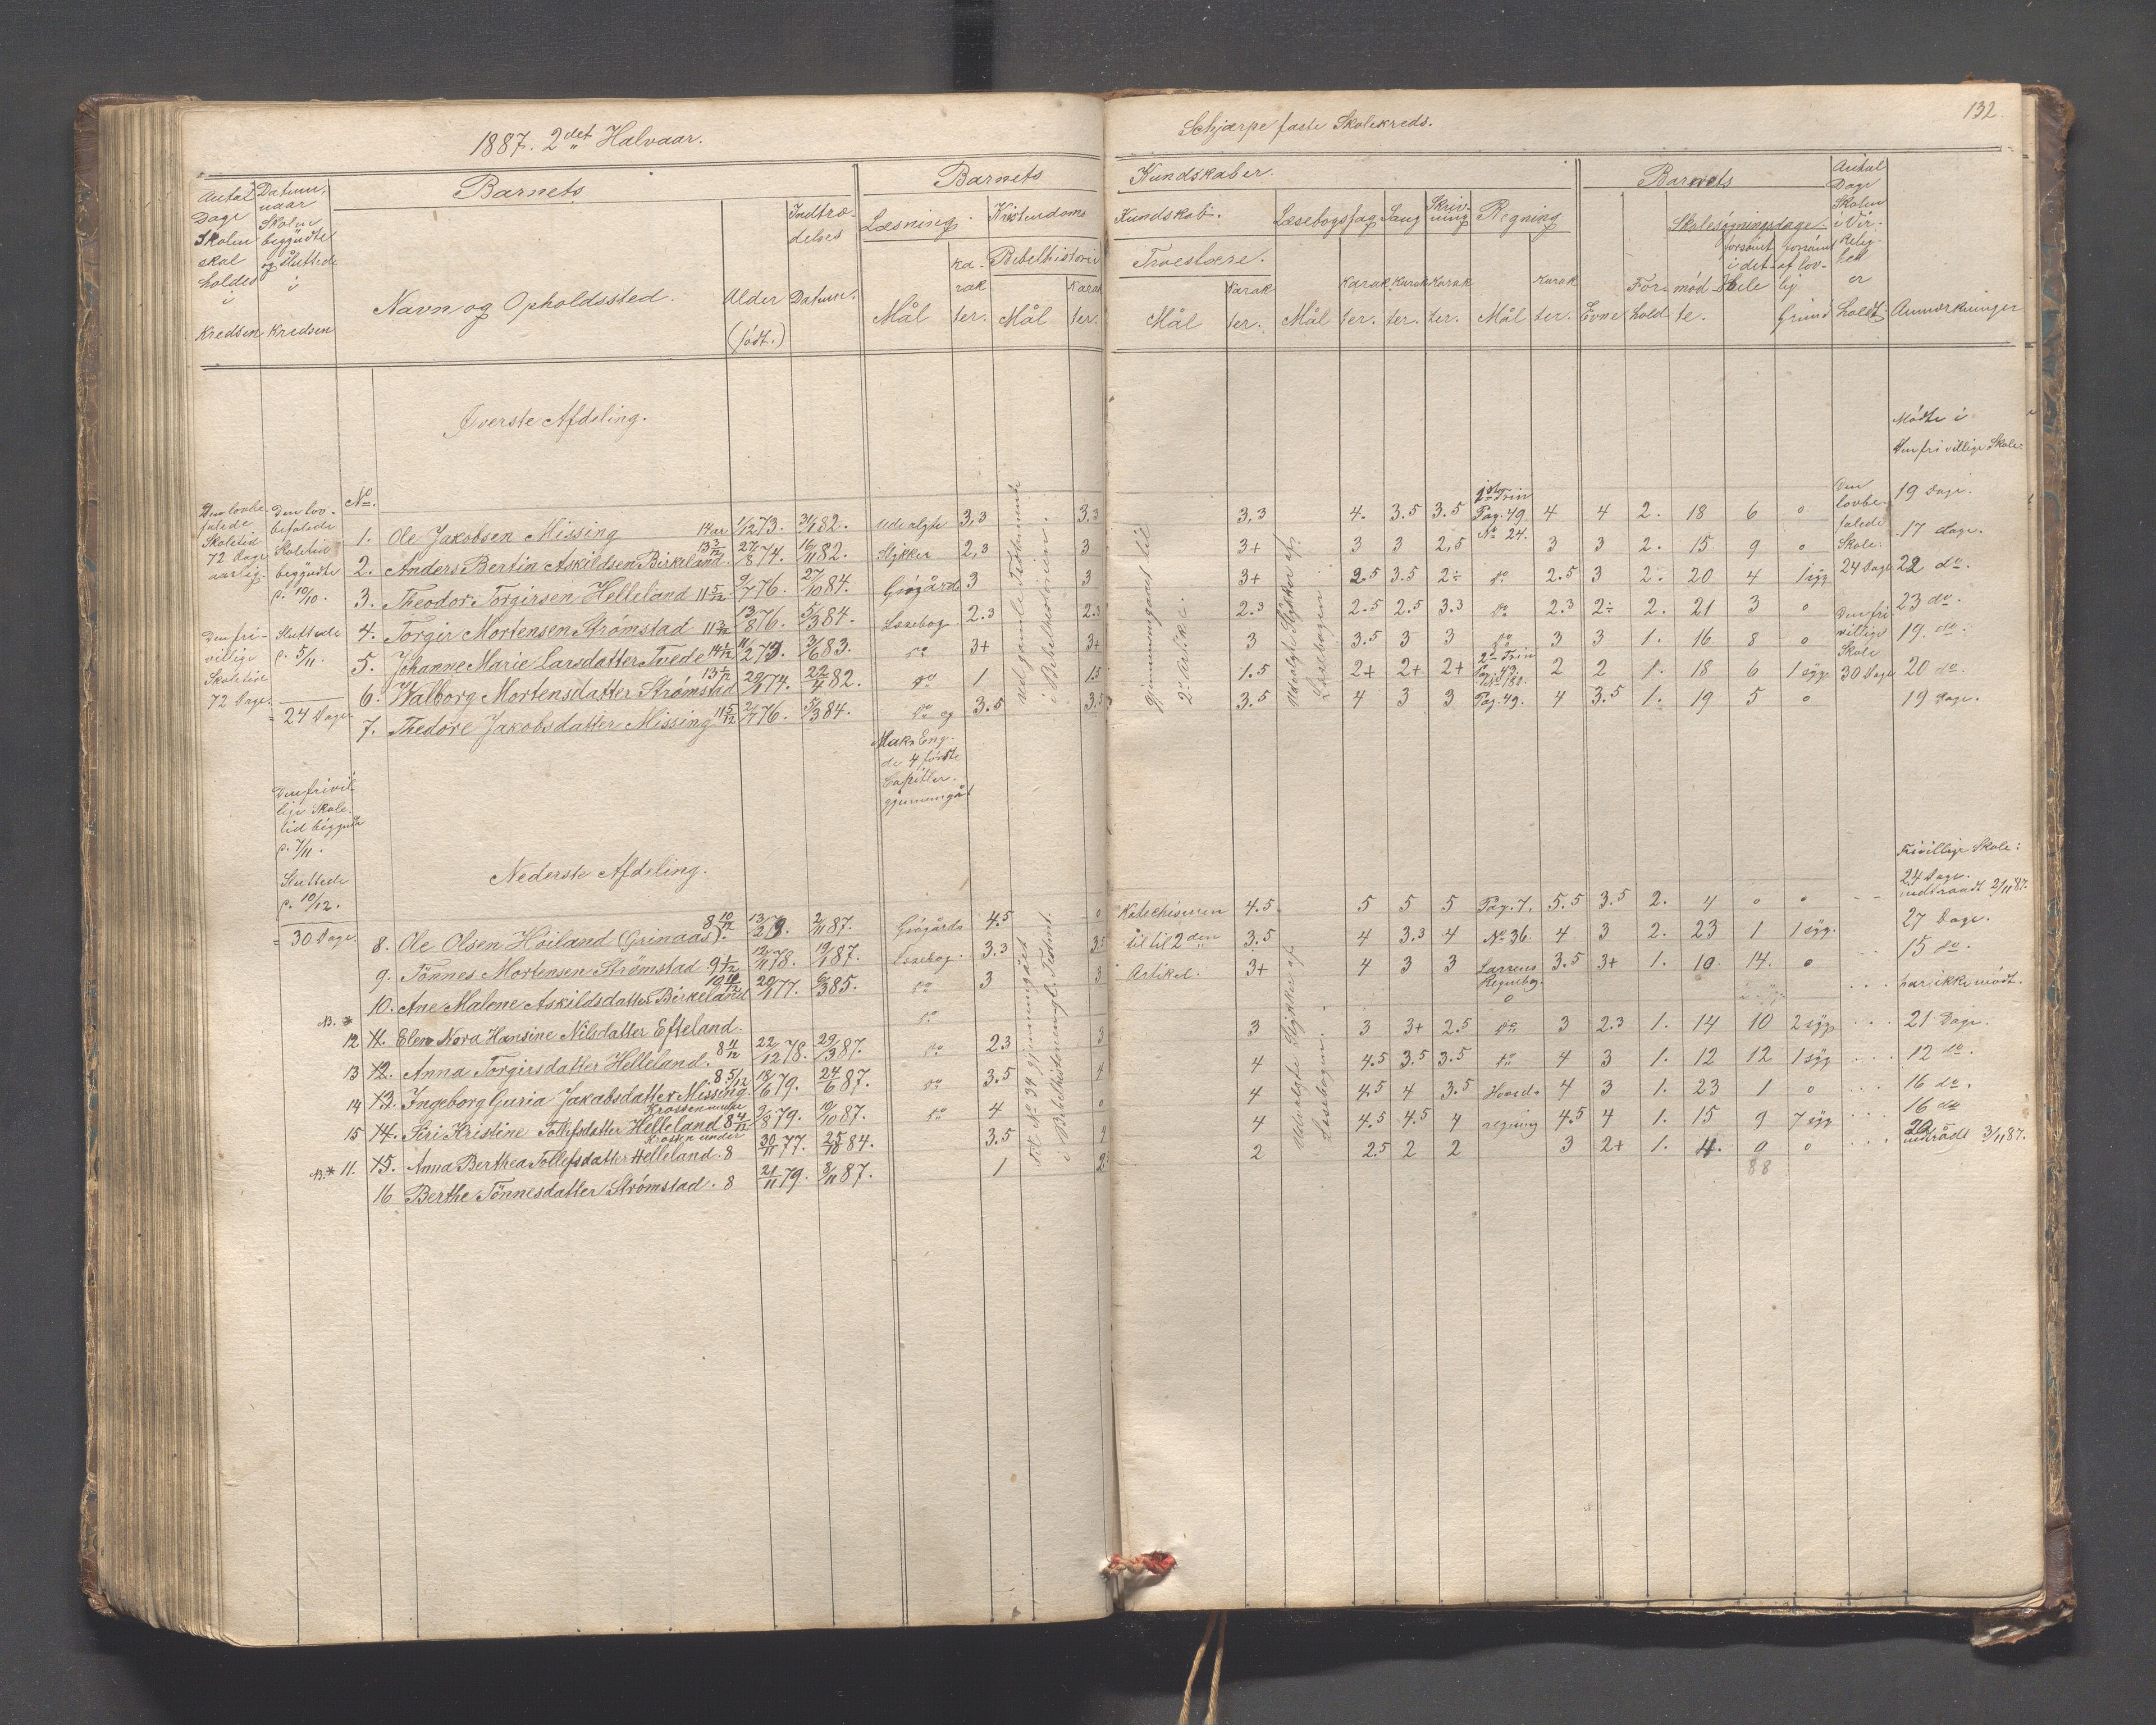 1887. 2det Halvaar.
Schjærpe faste Skolekreds.
132
Antal Dage Skolen skal holdes i Kredsen
Datum, naar Skolen begyndte og sluttede i Kredsen
Barnets
Navn og Opholdssted.
Alder (født.)
Indtrædelses Datum.
Barnets
Læsning.
Mål
Karakter.
Kristendoms
Bibelhistorie
Mål
Karakter.
Kundskaber.
Kundskab.
Troeslære.
Mål
Karakter.
Læsebogsfag
Mål
Karakter.
Sang
Karakter.
Skrivning
Karakter.
Regning
Mål
Karakter.
Barnets
Evne
Forhold
Skolesøgningsdage
mødte.
forsømt i det Hele
forsømt af lovlig Grund
Antal Dage Skolen i Virkelighed er holdt.
Anmærkninger
Øverste Afdeling.
Mødte i
den frivillige Skole:
No.
Den lovbefalede Skoletid 72 Dage aarlig.
Den lovbefalede Skoletid begyndte d. 10/10.
Sluttede d. 5/11.
= 24 Dage
Den frivillige Skoletid 72 Dage.
1. Ole Jakobsen Missing 14 aar 1/12 73. 31/1 82. Udvalgte 3,3 3.3 3,3 4. 3.5 3.5 Pag. 49 No 24. 4 4 2. 18 6 0 19 Dage.
2. Anders Bertin Askildsen Birkeland 13 3/12 27/8 74. 16/11 82. Stykker 2,3 3 3+ 3 3 2,5 3 3 2. 15 9 0 17 dage.
3. Theodor Torgirsen Helleland 11 5/12 9/7 76. 27/10 84. Giøgårds 3 3 3+ 2.5 3.5 2÷ do 2.5 3 2. 20 4 1 syg 22 do.
4. Torgir Mortensen Strømstad 11 3/12 13/8 76. 5/3 84. Læsebog 2.3 2.3 2.3 2.5 2.5 3.3 do 2.3 2÷ 2. 21 3 0 23 do.
5. Johanne Marie Larsdatter Tvede 14 1/12 11/2 73. 3/6 83. do 3+ 3+ 3 3.5 3 3 do 3 3 1. 16 8 0 19. do.
6. Walborg Mortensdatter Strømstad 13 1/12 20/9 74. 22/4 82. do 1 1.5 1.5 2+ 2+ 2+ 2det Trin 2 2 1. 18 6 1 syg 20 do.
7. Thedore Jakobsdatter Missing 11 5/12 2/7 76. 5/3 84. do og 3.5 3.5 3.5 4 3 3 Pag. 49. 4 3.5 1. 19 5 0 19 Dage.
Mark. Eng. de 4 første Capitler gjennemgåt
i Bibelhistorien.
gjennemgaaet til
Udvalgte Stykker af Læsebogen.
Den lovbefalede Skole. 24 Dage
Den frivillige Skole 30 Dage
Den frivillige Skoletid begyndte d. 7/11.
Sluttede d. 10/12.
= 30 Dage
Nederste Afdeling.
Frivillige Skole:
8. Ole Olsen Høiland (Grinaas). 8 10/12 2/11 87. Giøgårds 4.5 0 Katechismen 4.5 5 5 5 Pag. 7. 5.5 3.5 2. 4 0 0 24 Dage. indtraadt 2/11 87.
9. Tönnes Mortensen Strømstad 9 1/12 12/11 78. 19/1 87. Læsebog. 3.3 3.5 til til 2den 3.5 4 3.3 4 No 36. 4 3 2. 23 1 1 syg. 27 Dage.
10. Ane Malene Askildsdatter Birkeland 10 10/12 20/1 77. 6/3 85. do 3 3 Artikel. 3+ 4 3 3 Larsens Regnebog. 3.5 3+ 1. 10. 14. 0 15 do.
12 11. Elen Nora Hansine Nilsdatter Efteland. do har ikke mødt.
13 12. Anna Torgirsdatter Helleland. 8 11/12 22/12 78. 29/3 87. do 2.3 3 3 3 3+ 2.5 do 3 2.3 1. 14 10 2 syg 21 Dage.
14 13. Ingeborg Guria Jakobsdatter Missing. 8 5/12 18/6 79. 24/6 87. do 3.5 4 4 4.5 3.5 3.5 do 4 3 1. 12 12 1 syg 12 do.
15 14. Siri Kristine Tollefsdatter Helleland Krossen under 8 4/12 9/8 79. 10/10 87. do 4 0 4 4.5 4 3.5 Hoved- 4 3 1. 23 1 0 16 do.
NB.* 11. 15. Anna Berthea Tollefsdatter Helleland. Krossen under 8 30/11 77. 25/10 84. 3.5 4 4.5 4.5 4 regning 4.5 4 1. 15 9 7 syg 16 do
16 Berthe Tönnesdatter Strømstad. 8 21/11 79. 3/11 87. 1 2 2 2.5 2 2 3 2+ 1. 4. 0 0 indtrådt 3/11 87.
88
NB. *
Til No 34 gjennemgået
Udvalgte Stykker af Læsebogen.